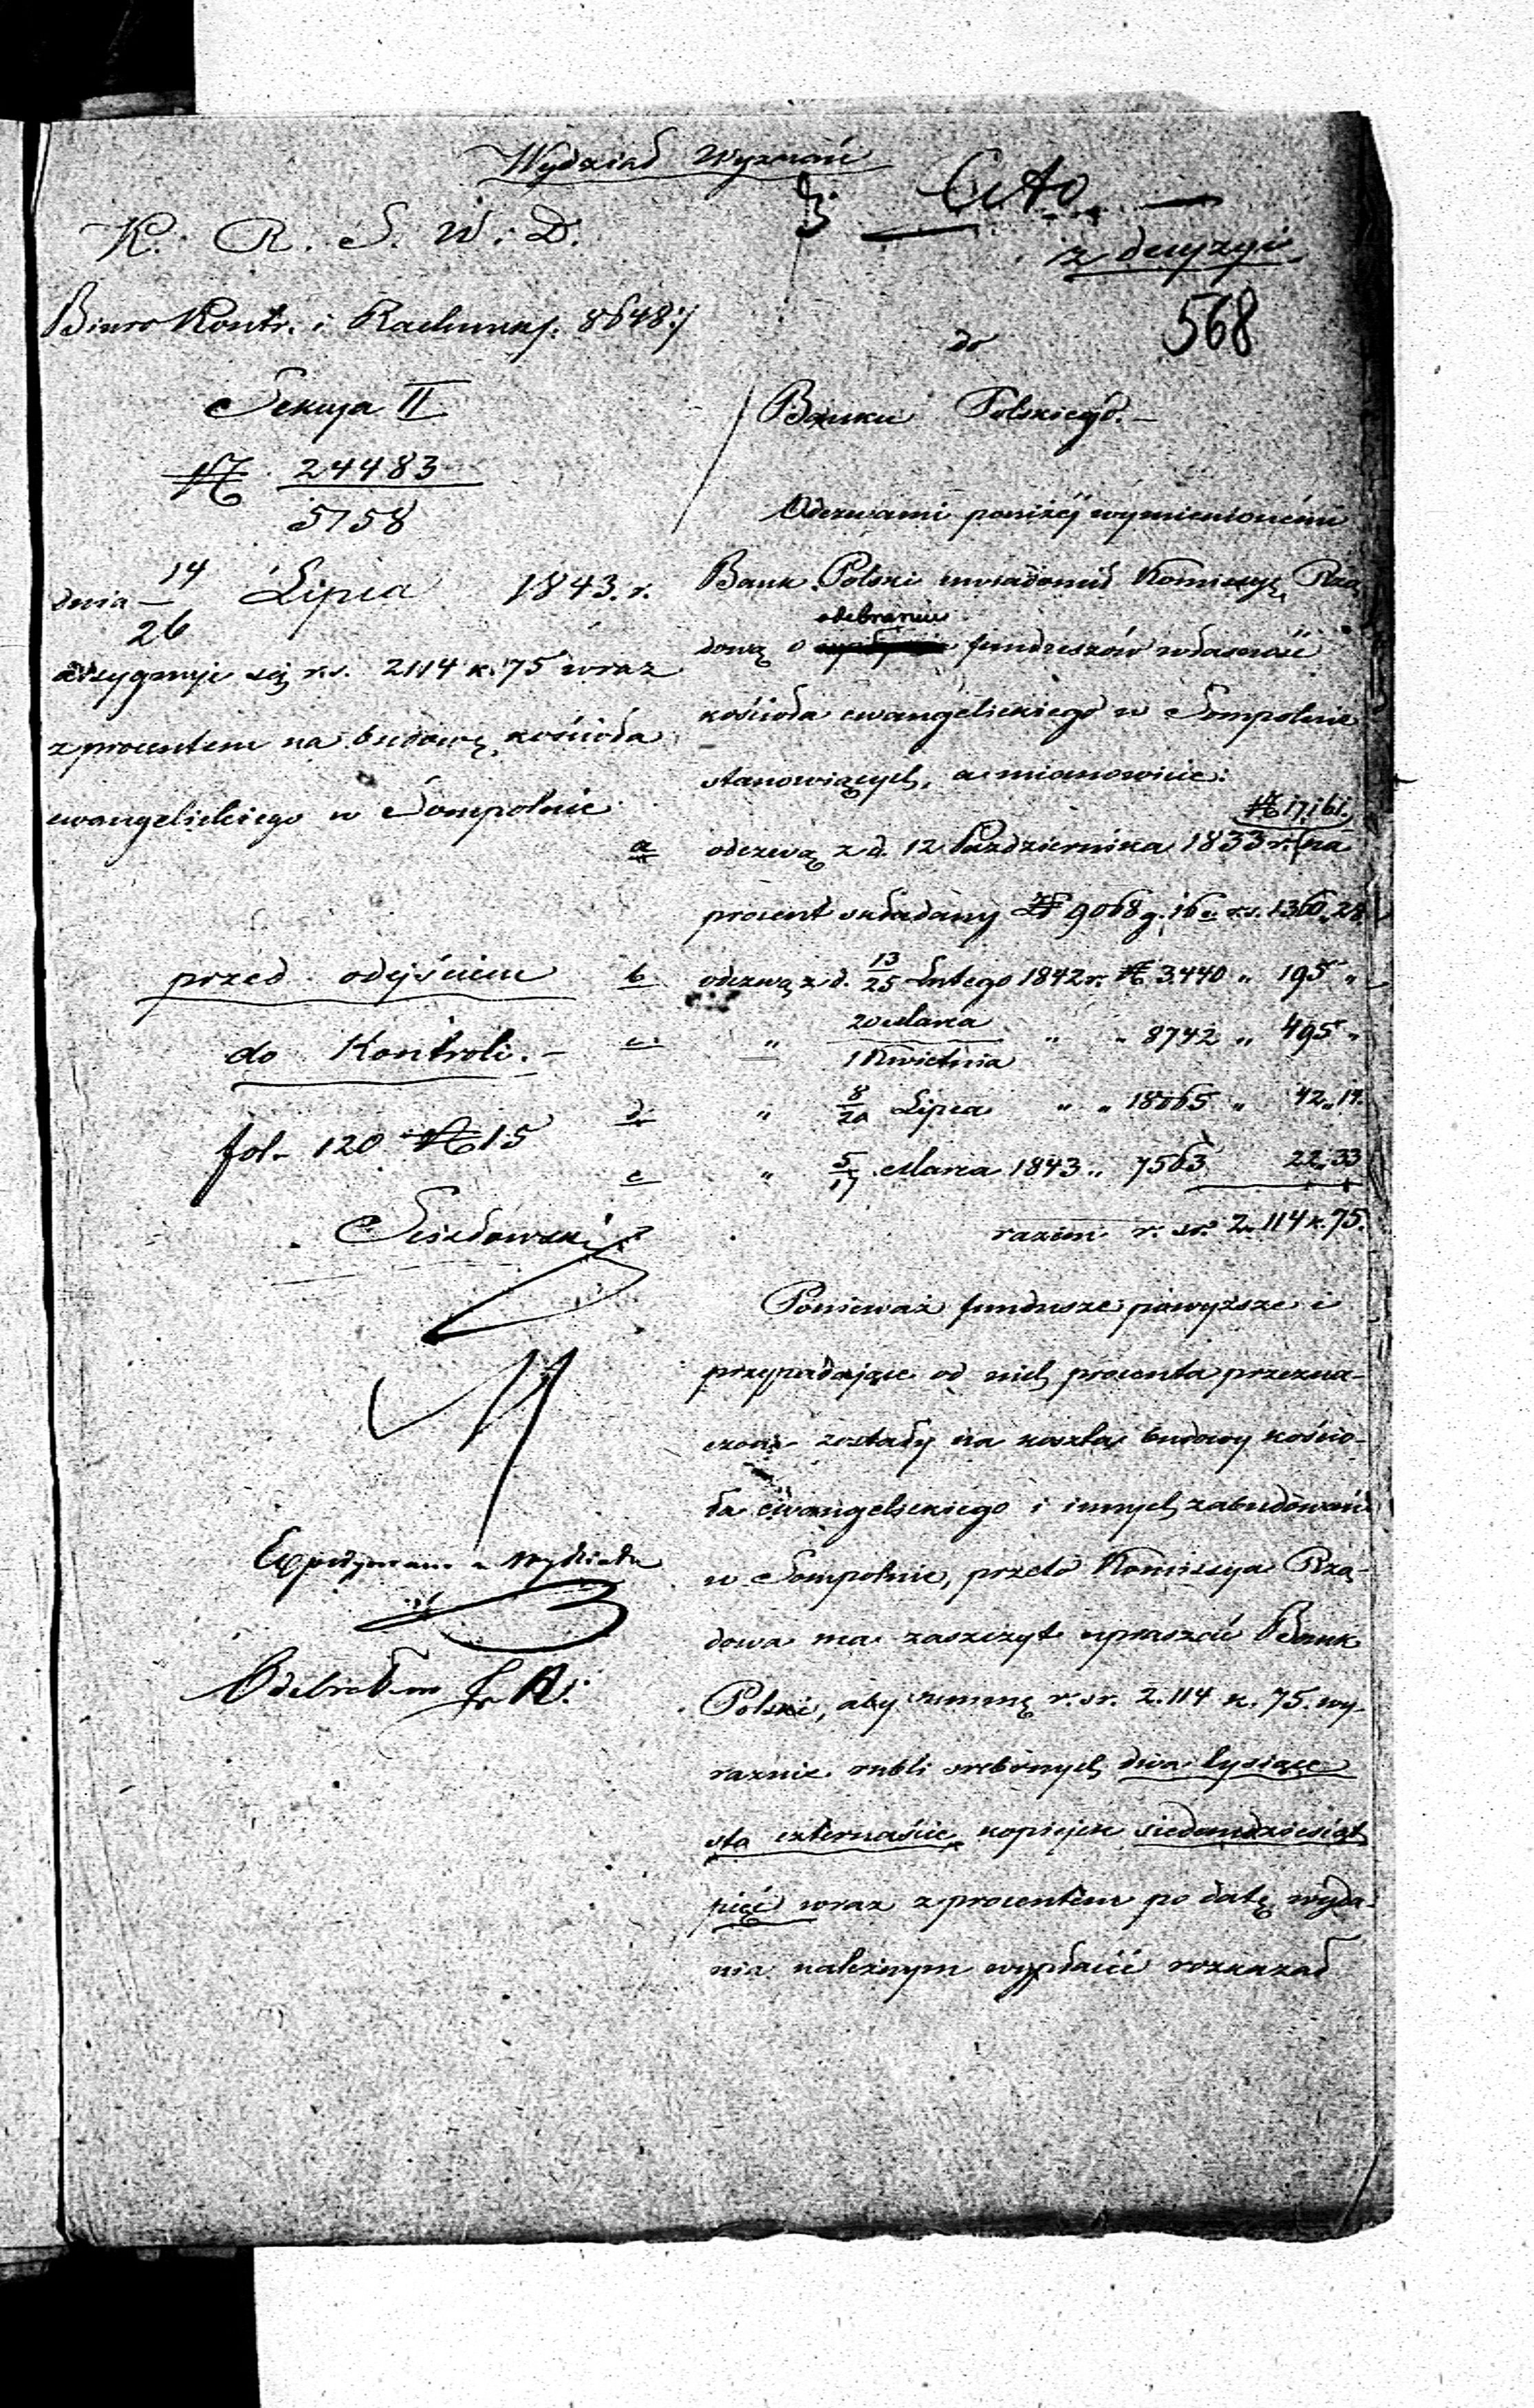 Wydział Wyznań
Cito
z decyzyi
K. R. S. W. D.
568
Biuro Kontr. i Rachunk. 8648
Sekcya II
№ 24483
5758
dnia 14/26 Lipca 1843. r.
assygnuje się r.s. 2114 k. 75 wraz
z procentem na budowę kościoła
ewangelickiego w Sompolnie
przed odejściem
do Kontroli.-
fol. 120 № 15
Expedyowano z Wydziału
Odebrałem
do
Banku Polskiego.-
Odezwami poniżéj wymienionémi
Bank Polski uwiadomił Kommissyę Rzą
odebraniu
dową o funduszów własność
kościoła ewangelickiego w Sompolnie
stanowiących, a mianowicie:
№ 17,161.
a odezwą z d. 12 Października 1833 r. na
procent składany Zł 9068 g. 16 c. rs. 1360 „ 28
b odezwą z d. 13/25 Lutego 1842 r. № 3.440 „ 195 „
c „ 20 Marca / 1 Kwietnia „ „ 8742 „ 495 „
d „ 8/20 Lipca „ „ 18065 „ 42 „ 14.
e „ 5/17 Marca 1843 „ 7563 22 „ 33
razem r. sr. 2.114 k. 75.
Ponieważ fundusze powyższe i
przypadające od nich procenta przezna-
czone zostały na koszta budowy kościo-
ła ewangelickiego i innych zabudowań
w Sompolnie, przeto Kommissya Rzą-
dowa ma zaszczyt upraszać Bank
Polski, aby summę r. sr. 2.114 k. 75. wy-
raznie rubli srebrnych dwa tysiące
sto czternaście kopiejek siedemdziesiąt
pięć wraz z procentem po datę wyda-
nia należnym wypłacić rozkazał